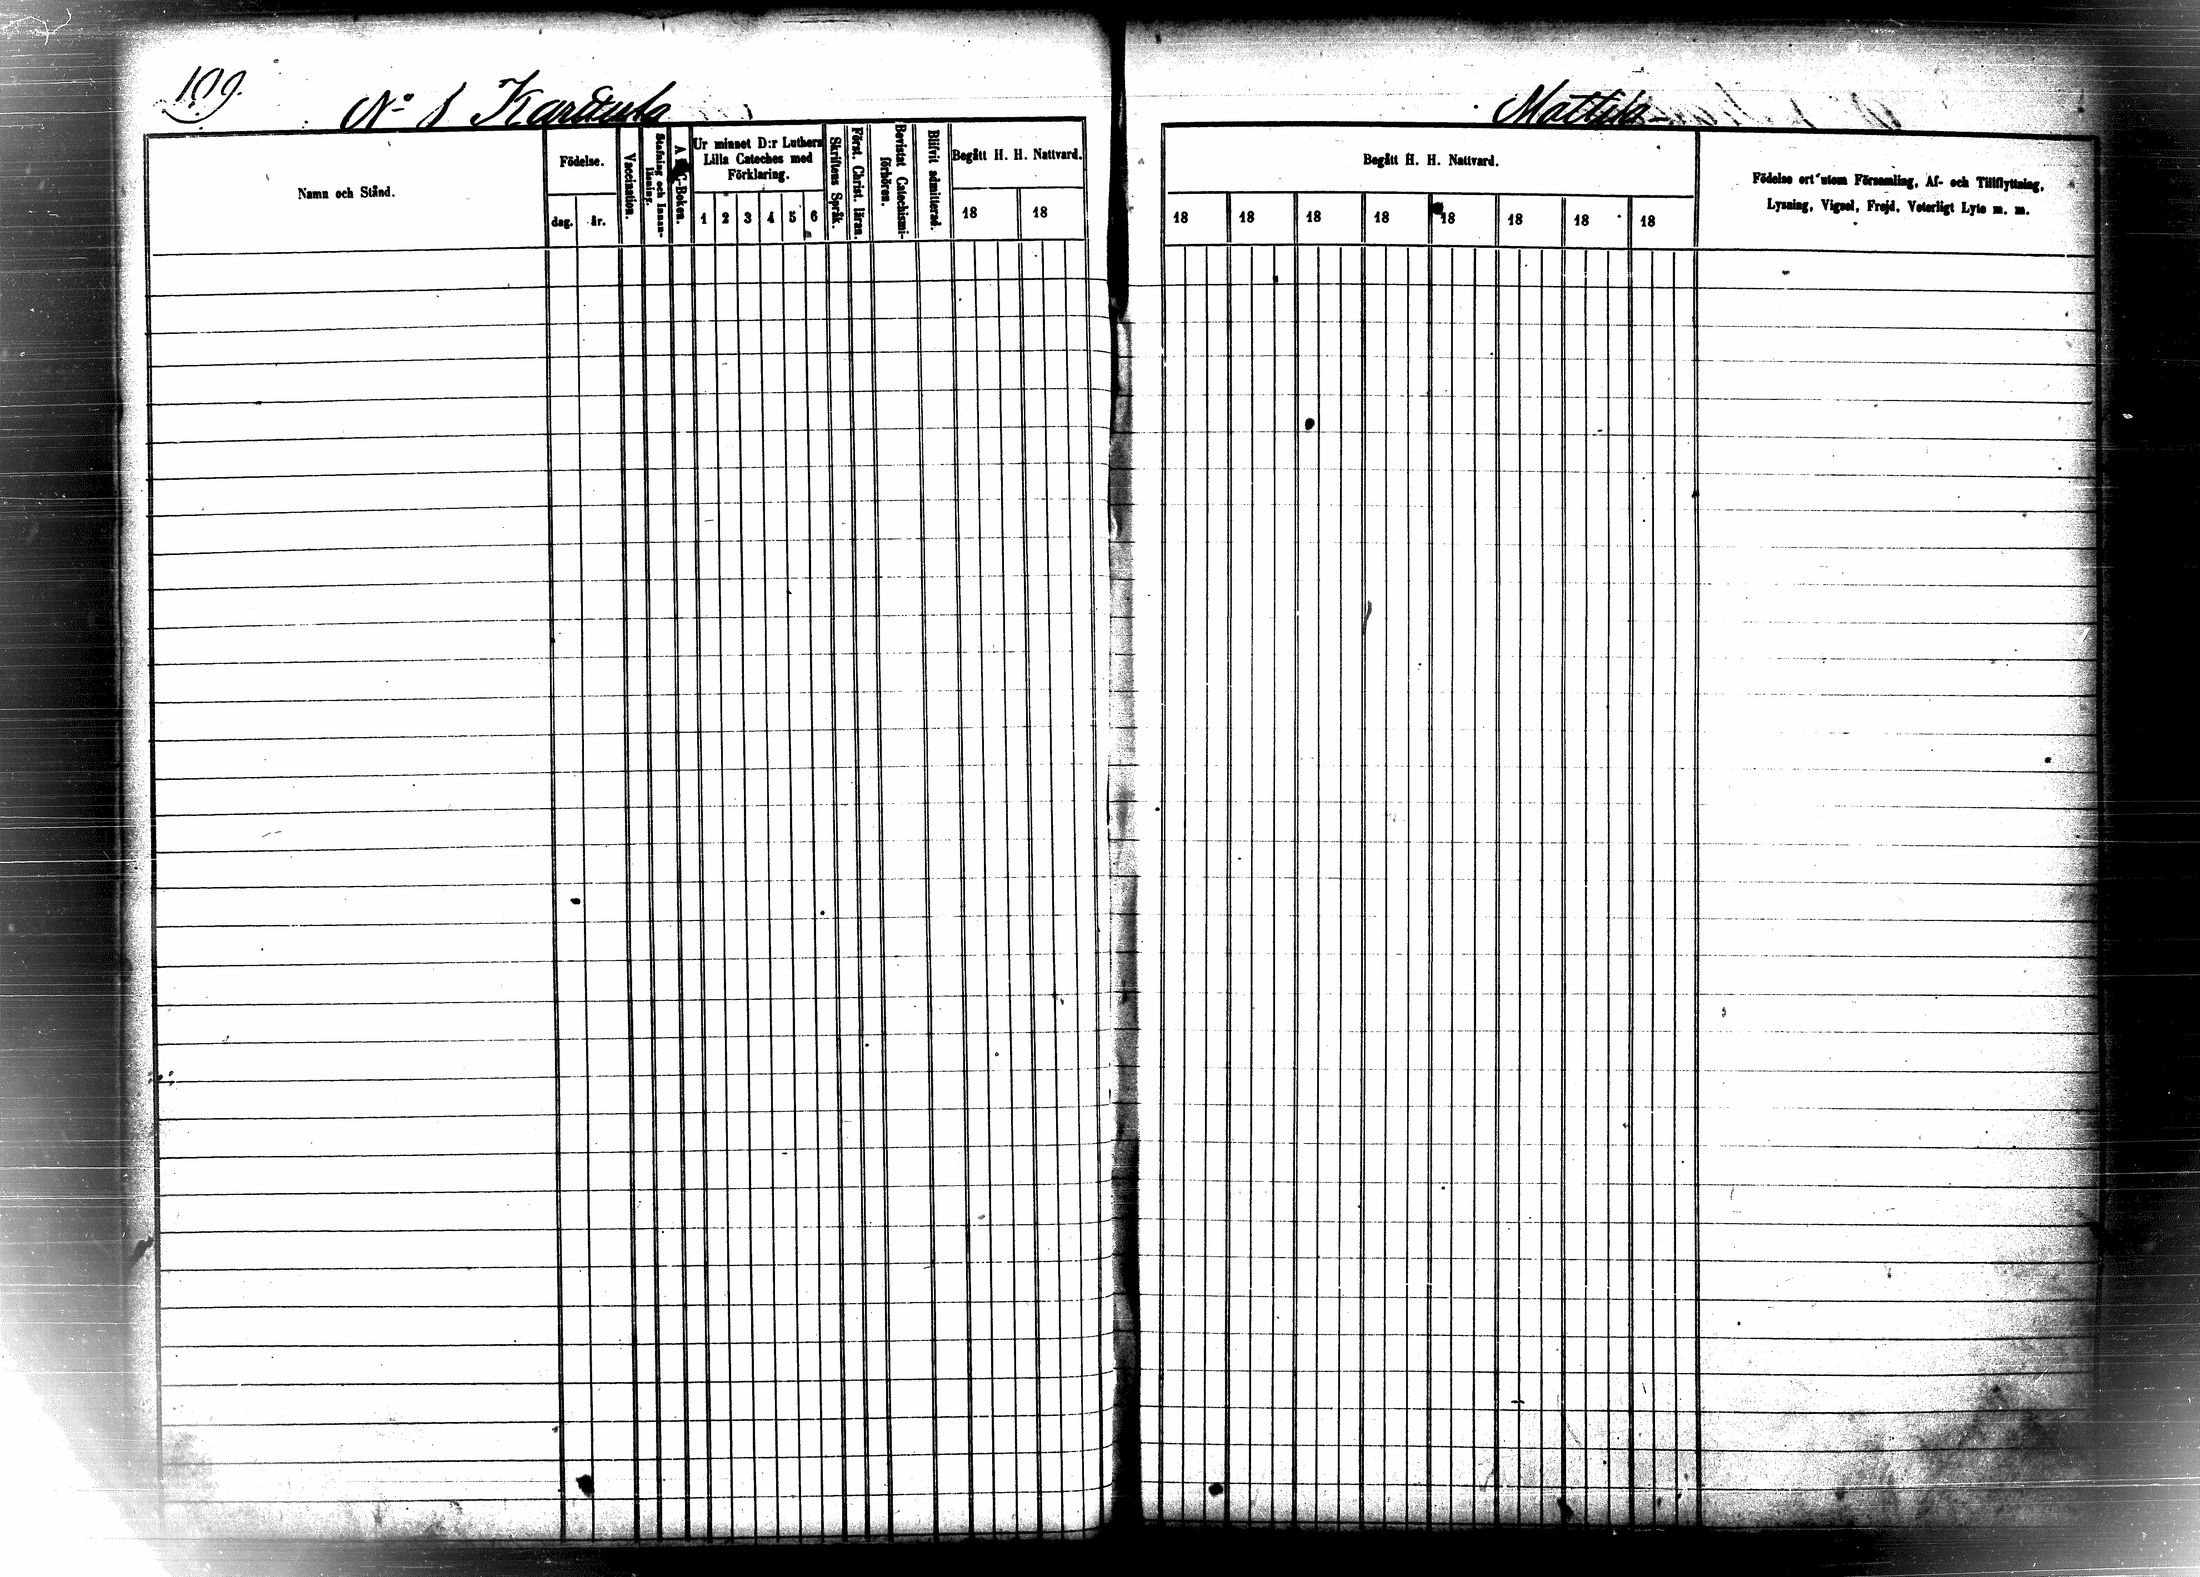 199.
No 1
Mattila
Namn och Stånd.
Födelse.
dag. år.
Vaccination.
Stafning och Innan-
läsning.
Ur minnet D:r Luthers
Lilla Cateches med
Förklaring.
1 2 3 4 5 6
Skriftens Språk.
Först. Christ. läran.
Bevistat Catechismi-
förhören.
Blifvit admitterad.
Begått H. H. Nattvard.
18 18
Begått H. H. Nattvard.
18 18 18 18 18 18 18 18
Födelse ort utom Församling, Af- och Tillflyttning,
Lysning, Vigsel, Frejd, Veterligt Lyte m. m.